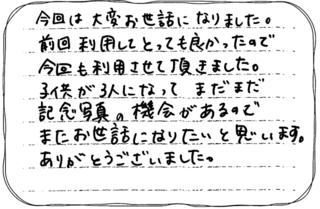 今回は大変お世話になりました。
前回利用してとっても良かったので
今回も利用させて頂きました。
子供が3人になって まだまだ
記念写真の機会があるので
またお世話になりたいと思います。
ありがとうございました。